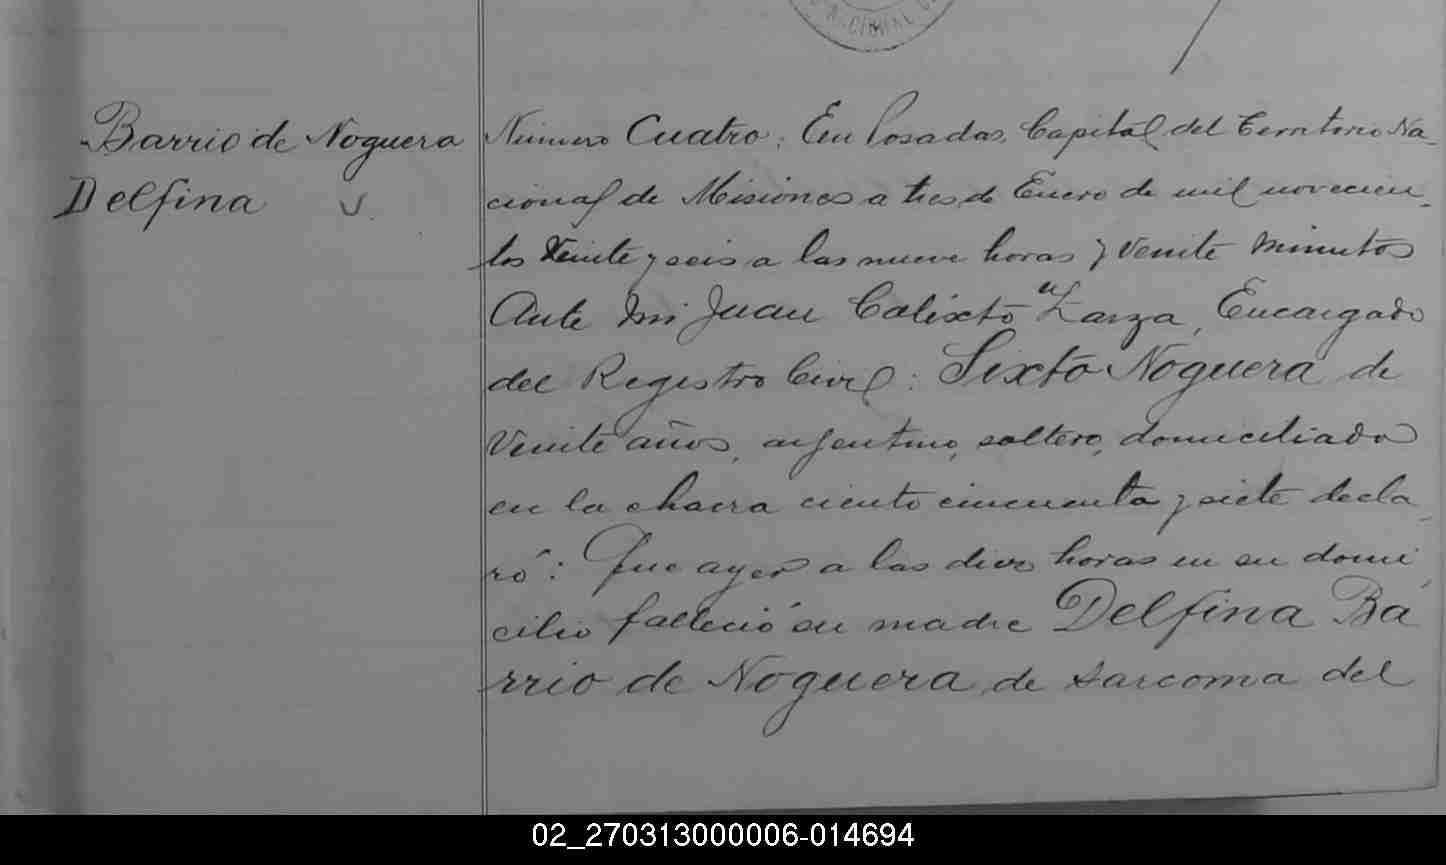 NACIONAL
Barrio de Noguera
Delfina V
Número Cuatro: En Posadas, Capital del Territorio Na-
cional de Misiones a tres de Enero de mil novecien-
tos veinte y seis a las nueve horas y veinte minutos
Ante mi Juan Calixto Zarza, Encargado
del Registro Civil: Sixto Noguera de
veinte años, argentino, soltero, domiciliado
en la chacra ciento cincuenta y siete decla-
ró: Que ayer a las diez horas en su domi-
cilio falleció su madre Delfina Ba-
rrio de Noguera de sarcoma del
02_270313000006-014694